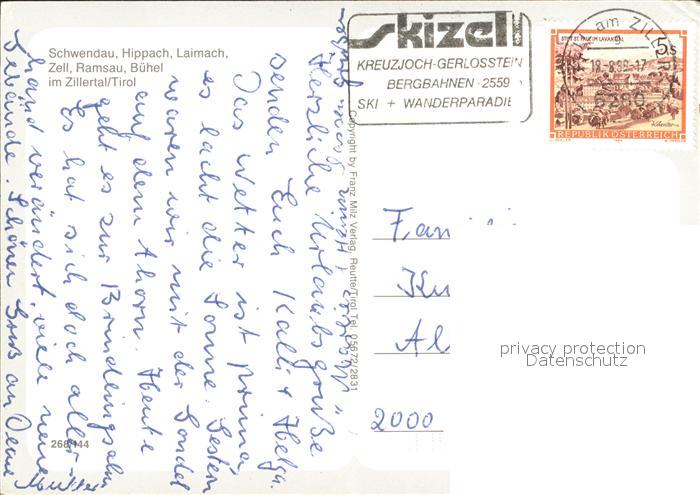 Schwendau, Hippach, Laimach,
Zell, Ramsau, Bühel
im Zillertal/Tirol
skizell
KREUZJOCH-GERLOSSTEIN
BERGBAHNEN 2559
SKI + WANDERPARADIE
am ZILLER
18.-8.88-17
6280
5S
STIFT ST. PAUL IM LAVANTTAL
REPUBLIK ÖSTERREICH
Herzliche Urlaubsgrüße
senden Euch Kalli + Helga.
Das Wetter ist prima,
es lacht die Sonne. Gestern
waren wir mit der Gondel
auf dem Ahorn. Heute
geht es zur Bründlingsalm
Es hat sich doch aller-
hand verändert, viele neue
Gebäude. Schönen Gruß an Deine
Mutter
Copyright by Franz Milz Verlag, Reutte/Tirol Tel. 05672/2831
268/144
Fam
Ku
Al
2000
privacy protection
Datenschutz